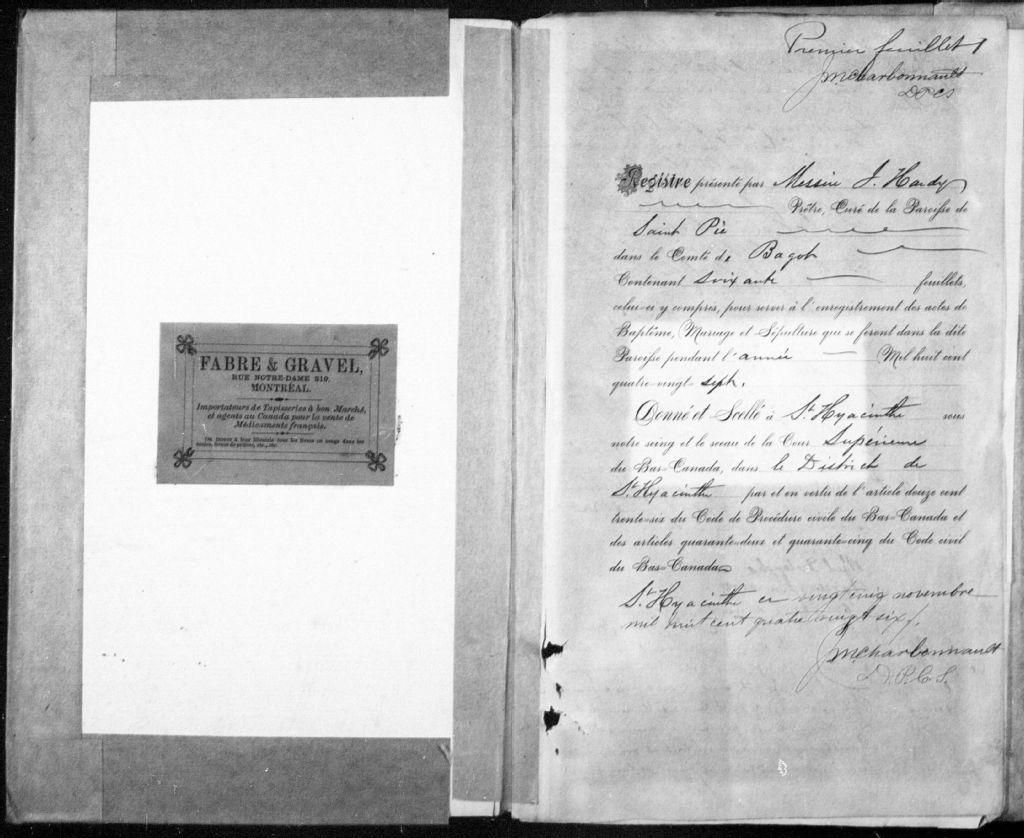 FABRE & GRAVEL,
RUE NOTRE-DAME 219,
MONTRÉAL.
Importateurs de Tapisseries à bon Marché,
et agents au Canada pour la vente de
Médicaments français.
On trouve à leur librairie tous les livres en usage dans les
écoles, livres de prières, etc., etc.
Premier feuillet 1
JMCharbonnault
DPCS
Registre présenté par Messire J. Hardy
Prêtre, Curé de la Paroisse de
Saint Pie
dans le Comté de Bagot
Contenant Soixante feuillets,
celui-ci y compris, pour servir à l'enregistrement des actes de
Baptême, Mariage et Sépulture qui se feront dans la dite
Paroisse pendant l'année Mil huit cent
quatre-vingt-sept.
Donné et Scellé à St. Hyacinthe sous
notre seing et le sceau de la Cour Supérieure
du Bas-Canada, dans le District de
St. Hyacinthe par et en vertu de l'article douze cent
trente-six du Code de Procédure civile du Bas-Canada et
des articles quarante-deux et quarante-cinq du Code civil
du Bas-Canada
St. Hyacinthe ce vingt cinq novembre
mil huit cent quatre vingt six/.
JMCharbonnault
D.P.C.S.